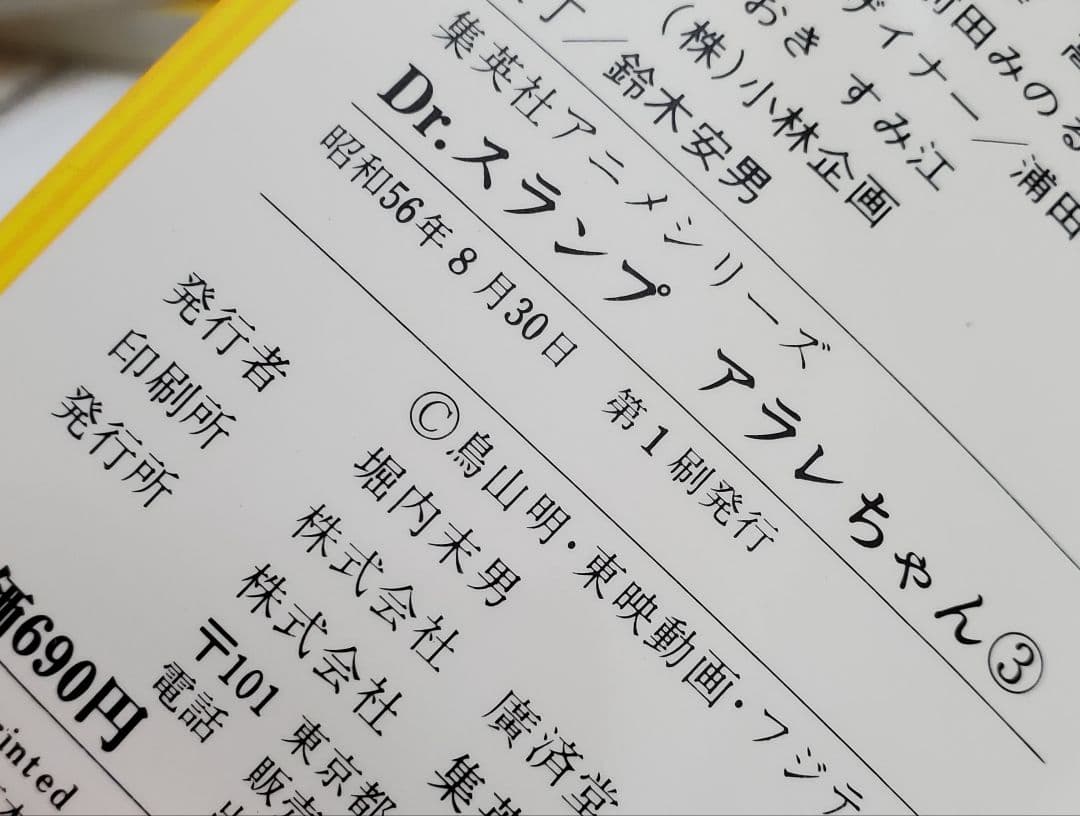 前田みのる
ザイナー／浦田
おき すみ江
(株)小林企画
丁／鈴木安男
集英社アニメシリーズ
Dr.スランプ アラレちゃん③
昭和56年8月30日 第1刷発行
©鳥山明・東映動画・フジテ
発行者 堀内末男
印刷所 株式会社 廣済堂
発行所 株式会社 集英
〒101 東京都
電話 販売
価690円
inted